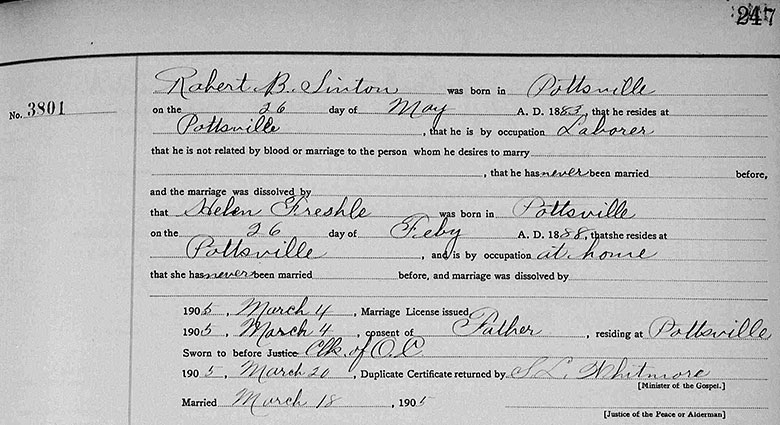 247
Robert B. Sinton was born in Pottsville
No. 3801
on the 26 day of May A. D. 1883, that he resides at
Pottsville, that he is by occupation Laborer
that he is not related by blood or marriage to the person whom he desires to marry
, that he has never been married before,
and the marriage was dissolved by
that Helen Freshle was born in Pottsville
on the 26 day of Feby A. D. 1888, that she resides at
Pottsville, and is by occupation at home
that she has never been married before, and marriage was dissolved by
1905, March 4, Marriage License issued
1905, March 4, consent of Father, residing at Pottsville
Sworn to before Justice Clk. of O.C
1905, March 20, Duplicate Certificate returned by S. L. Whitmore
[Minister of the Gospel.]
Married March 18, 1905
[Justice of the Peace or Alderman]